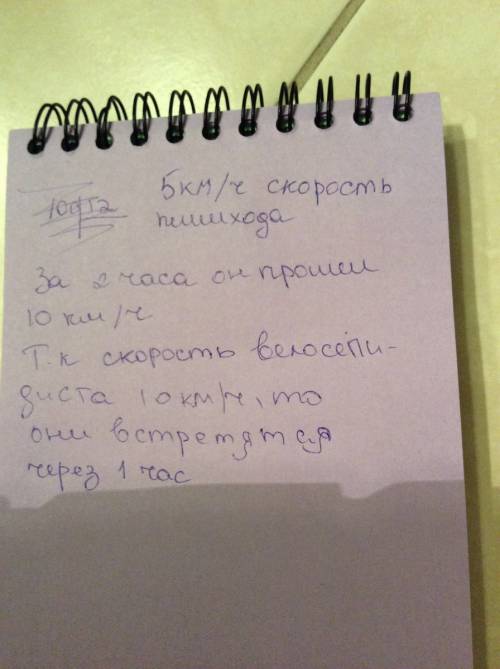 5км/ч скорость
пешихода
За 2 часа он прошел
10 км/ч
Т.к скорость велосепи-
диста 10 км/ч, то
они встретятся
через 1 час